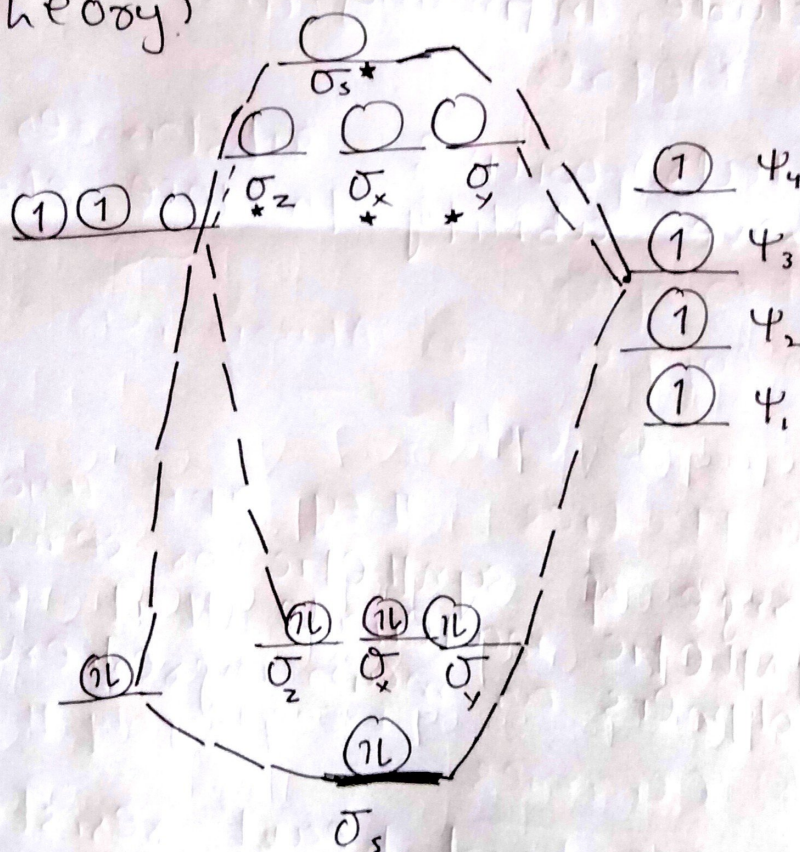 heory)
σs*
σ*z σ*x σ*y
1 1
1 ψ4
1 ψ3
1 ψ2
1 ψ1
1l 1l 1l
σz σx σy
1l
1l
σs